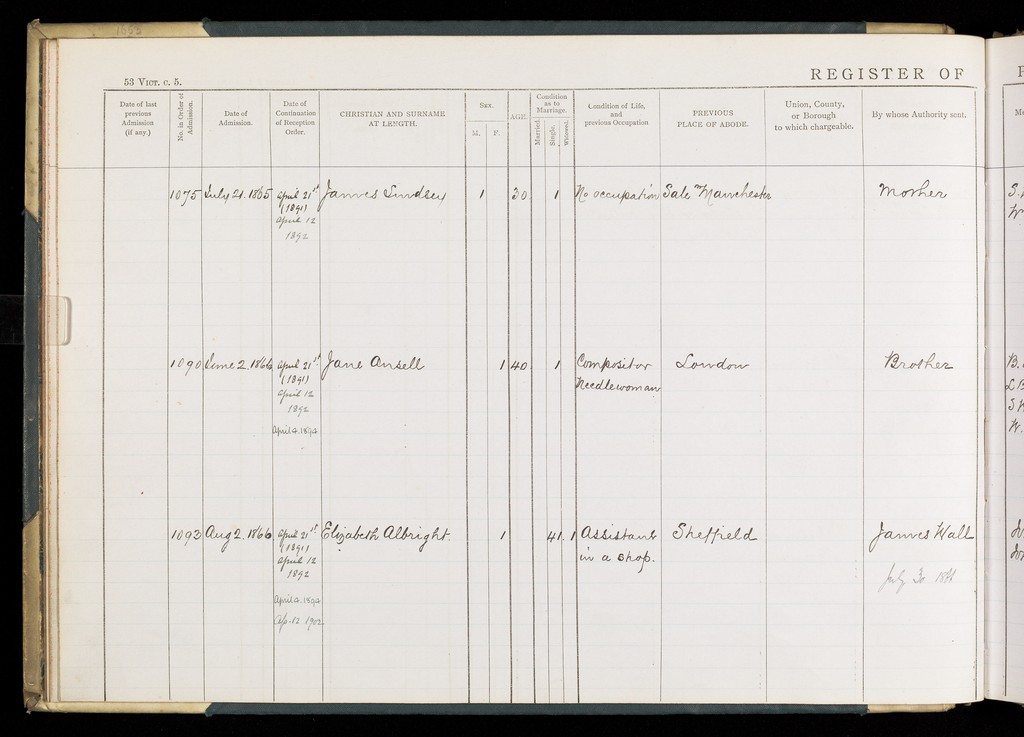 53 VICT. c. 5.
REGISTER OF
Date of last previous Admission (if any.)
No. in Order of Admission.
Date of Admission.
Date of Continuation of Reception Order.
CHRISTIAN AND SURNAME AT LENGTH.
Sex.
M. F.
AGE.
Condition as to Marriage.
Married. Single. Widowed.
Condition of Life, and previous Occupation
PREVIOUS PLACE OF ABODE.
Union, County, or Borough to which chargeable.
By whose Authority sent.
1075 July 21. 1865 April 21st James Lindsey 1 30 1 No occupation Sale Manchester Mother
(1891)
April 12
1892
1090 June 2. 1866 April 21st Jane Ansell 1 40 1 Compositor London Brother
(1891) Needlewoman
April 12
1892
April 4. 1894
1093 Aug 2. 1866 April 21st Elizabeth Albright. 1 41 1 Assistant Sheffield James Hall
(1891) in a shop.
April 12
1892
July 30
April 4. 1894
Ap. 12 1902